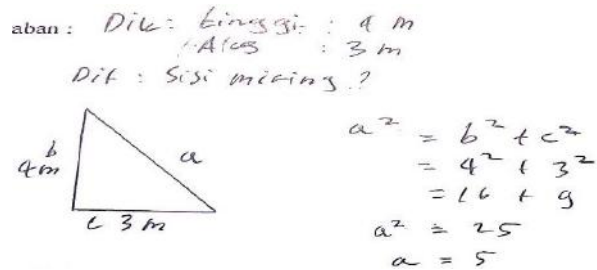 aban : Dik : tinggi : 4 m
Alas : 3 m
Dit : Sisi miring ?
b
4 m
a
c 3 m
a² = b² + c²
= 4² + 3²
= 16 + 9
a² = 25
a = 5